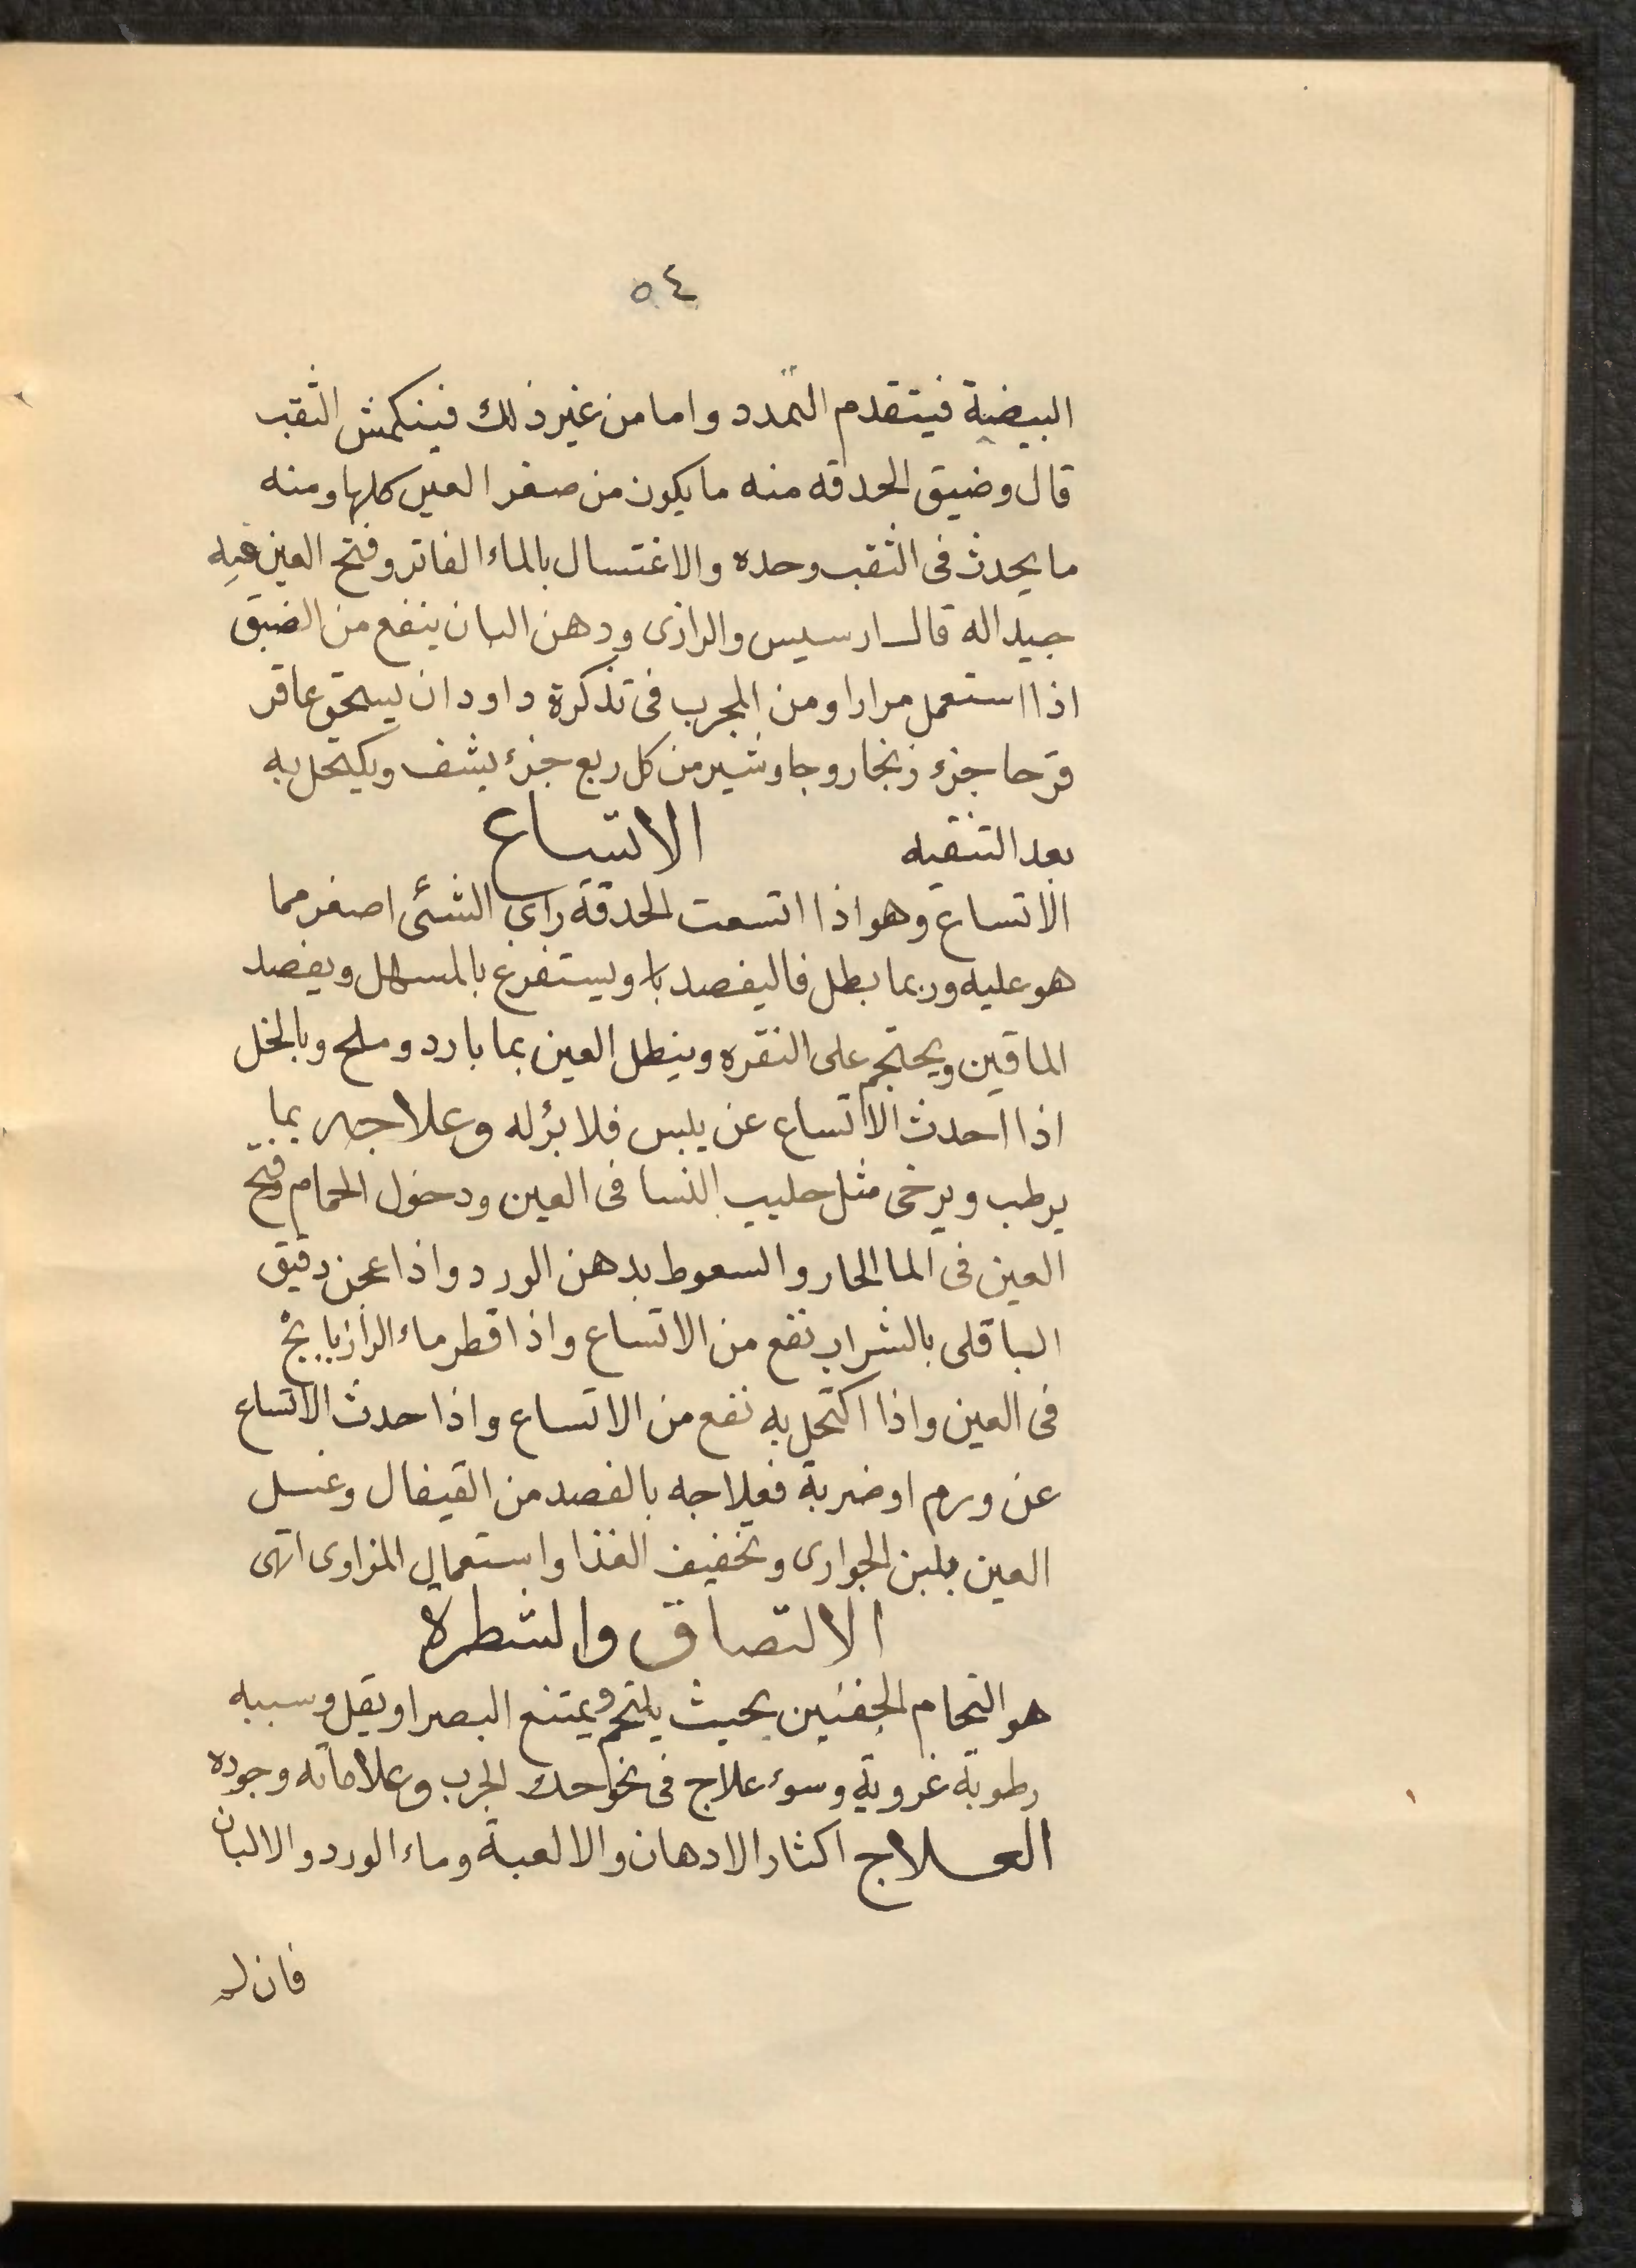 ٥٤
البيضية فيتقدم التمدد واما من غير ذلك فينكمش الثقب
قال وضيق الحدقه منه ما يكون من صغر العين كلها ومنه
ما يحدث فى الثقب وحده والاغتسال بالماء الفاتر وفتح العين فيه
جيد اله قال ارسيس والرازى ودهن البان ينفع من الضيق
اذا استعمل مرارا ومن المجرب فى تذكرة داود ان يسحق عاقر
قرحا جزء زنجار وجاوشير من كل ربع جزء يشف ويكتحل به
بعد التنقيه الاتساع
الاتساع وهو اذا اتسعت الحدقة راى الشئى اصغر مما
هو عليه وربما بطل فاليفصد ويستفرغ بالمسهل ويفصد
الماقين ويحتجم على النقره وينطل العين بما بارد وملح وبالخل
اذا احدث الاتساع عن يبس فلا برٔ له وعلاجه بما
يرطب ويرخى مثل حليب النسا فى العين ودخول الحمام وفتح
العين فى الما الحار والسعوط بدهن الورد واذا عجن دقيق
الباقلى بالشراب نفع من الاتساع واذا قطر ماء الرازيانج
فى العين واذا اكتحل به نفع من الاتساع واذا حدث الاتساع
عن ورم او ضربة فعلاجه بالفصد من القيفال وغسل
العين بلبن الجوارى وتخفيف الغذا واستعمال المزاوى انتهى
الالتصاق والشطرة
هو التحام الجفنين بحيث يلتحم ويمتنع البصر او يقل وسببه
رطوبة غروية وسوء علاج فى نحو حك الجرب وعلاماته وجوده
العلاج اكثار الادهان والالعبة وماء الورد والالبان
فان لم